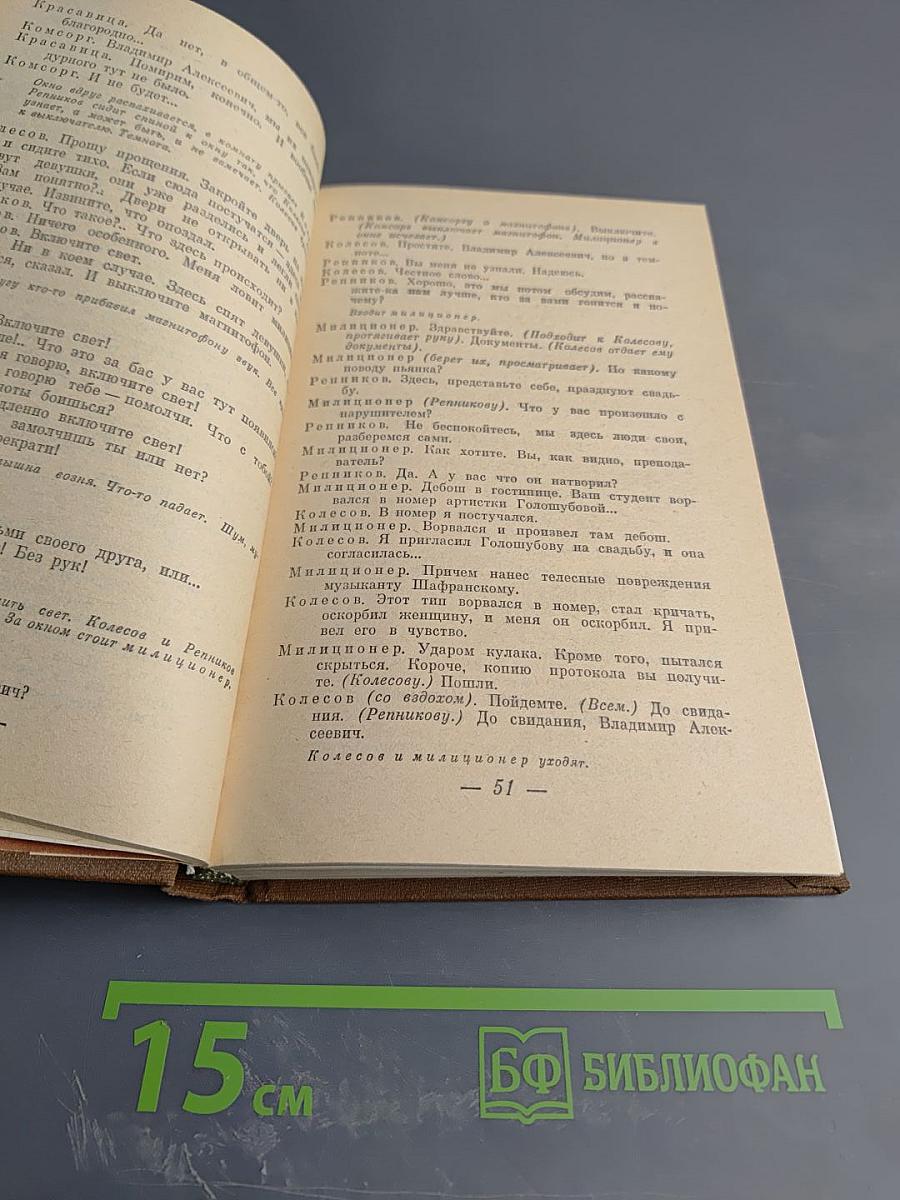 Красавица. Да нет, в общем-то, все
благородно...
Комсорг. Владимир Алексеевич, мы их
Красавица. Помирим, конечно. И вообще
дурного тут не было.
Комсорг. И не будет...
Окно вдруг распахивается, в комнату
Репников сидит спиной к окну так, что Колесов
узнает, а может быть, и не замечает. Колесов
к выключателю. Темнота.
лесов. Прошу прощения. Закройте дверь на
и сидите тихо. Если сюда постучатся
вут девушки, они уже разделись и легли
Вам понятно?.. Двери не открывать ни в
учае. Извините, что опоздал.
ков. Что такое?.. Что здесь происходит?
ов. Ничего особенного. Меня ловит
ов. Включите свет.
Ни в коем случае. Здесь спят девушки
ся, сказал. И выключите магнитофон.
угу кто-то прибавил магнитофону звук. Все
Включите свет!
ле!.. Что это за бас у вас тут появился
я говорю, включите свет!
говорю тебе — помолчи. Что с тобой?
ноты боишься?
дленно включите свет!
замолчишь ты или нет?
рекрати!
ышна возня. Что-то падает. Шум,
ьми своего друга, или...
! Без рук!
ить свет. Колесов и Репников
За окном стоит милиционер.
ич?
—
Репников. (Комсоргу о магнитофоне). Выключите.
(Комсорг выключает магнитофон. Милиционер в
окне исчезает.)
Колесов. Простите, Владимир Алексеевич, но в тем-
ноте...
Репников. Вы меня не узнали. Надеюсь.
Колесов. Честное слово...
Репников. Хорошо, это мы потом обсудим, расска-
жите-ка нам лучше, кто за вами гонится и по-
чему?
Входит милиционер.
Милиционер. Здравствуйте. (Подходит к Колесову,
протягивает руку). Документы. (Колесов отдает ему
документы).
Милиционер (берет их, просматривает). По какому
поводу пьянка?
Репников. Здесь, представьте себе, празднуют свадь-
бу.
Милиционер (Репникову). Что у вас произошло с
нарушителем?
Репников. Не беспокойтесь, мы здесь люди свои,
разберемся сами.
Милиционер. Как хотите. Вы, как видно, препода-
ватель?
Репников. Да. А у вас что он натворил?
Милиционер. Дебош в гостинице. Ваш студент вор-
вался в номер артистки Голошубовой...
Колесов. В номер я постучался.
Милиционер. Ворвался и произвел там дебош.
Колесов. Я пригласил Голошубову на свадьбу, и она
согласилась...
Милиционер. Причем нанес телесные повреждения
музыканту Шафранскому.
Колесов. Этот тип ворвался в номер, стал кричать,
оскорбил женщину, и меня он оскорбил. Я при-
вел его в чувство.
Милиционер. Ударом кулака. Кроме того, пытался
скрыться. Короче, копию протокола вы получи-
те. (Колесову.) Пошли.
Колесов (со вздохом). Пойдемте. (Всем.) До свида-
ния. (Репникову.) До свидания, Владимир Алек-
сеевич.
Колесов и милиционер уходят.
— 51 —
15 см
БФ БИБЛИОФАН